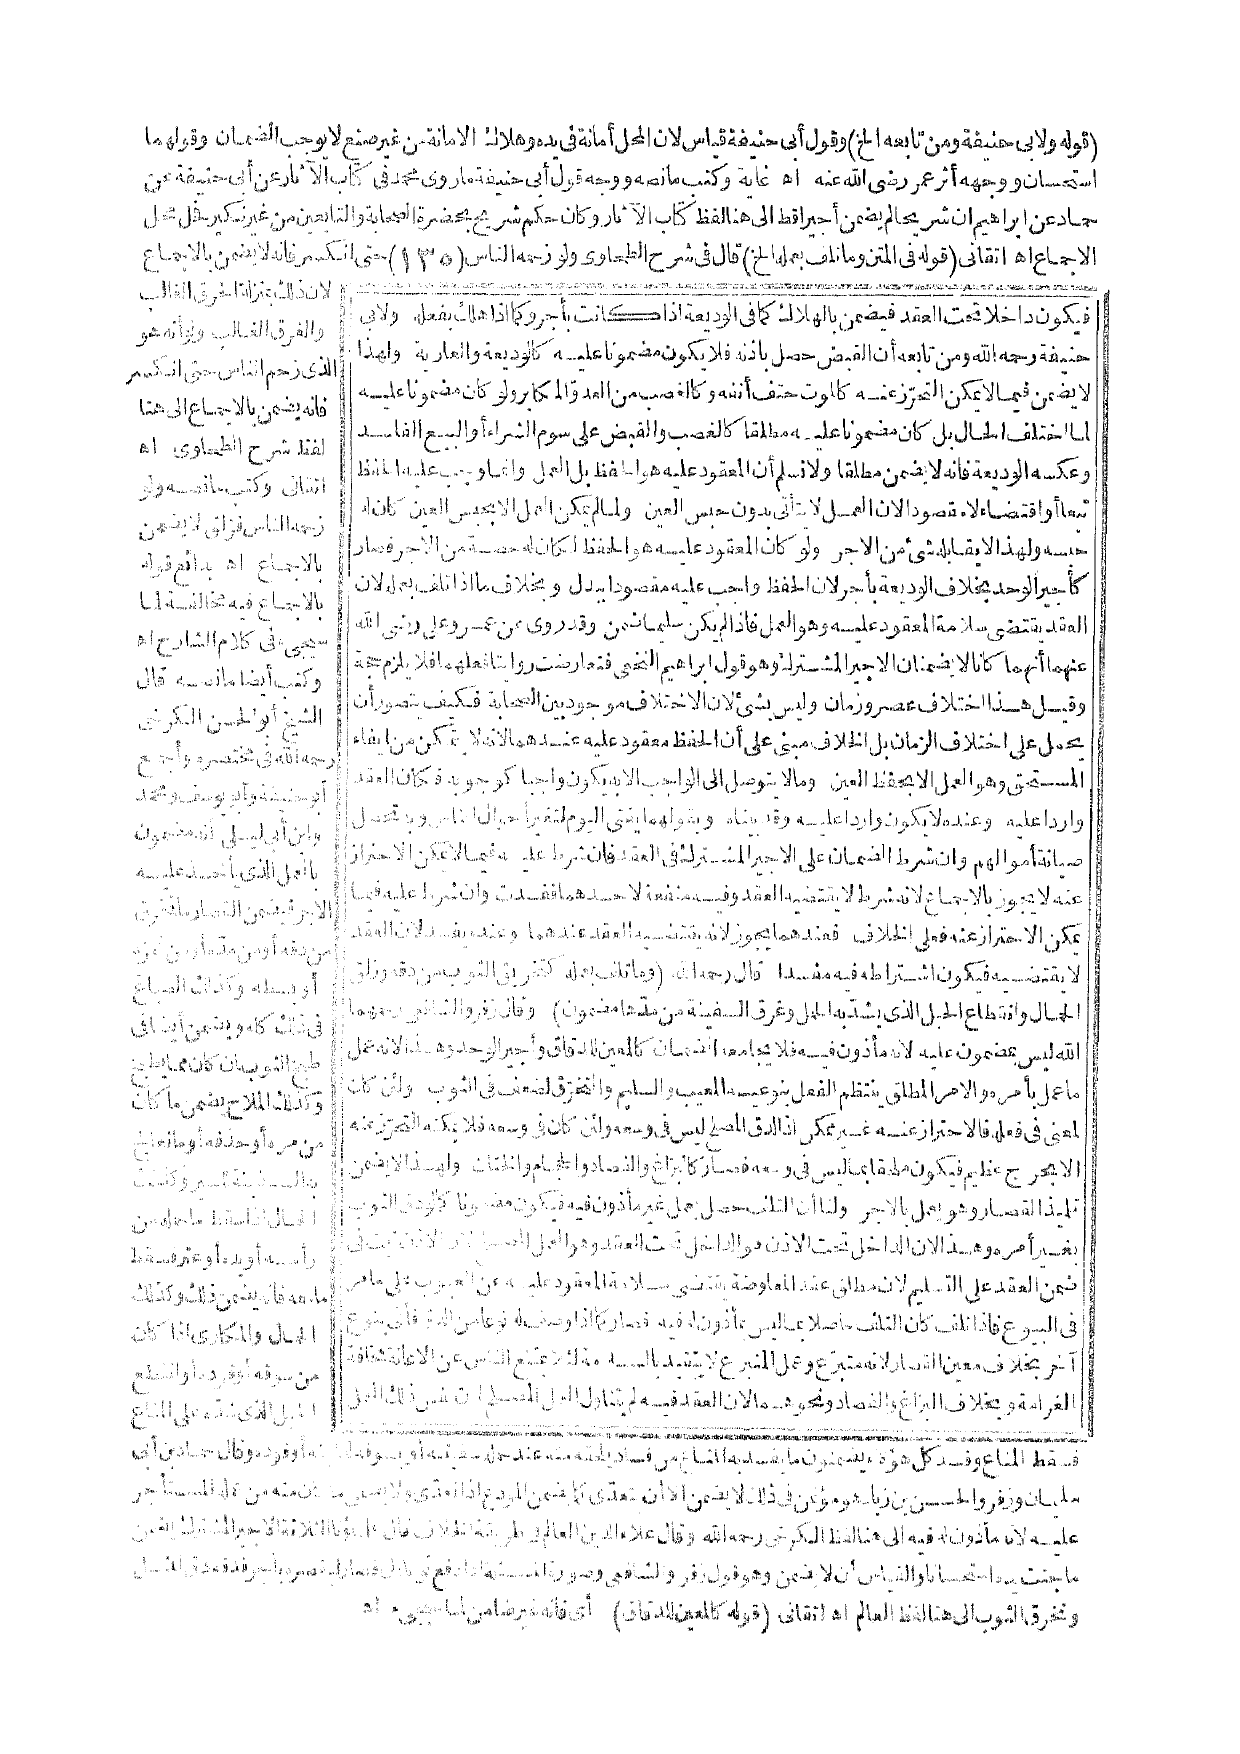 (قوله ولابي حنيفة ومن تابعه الخ) وقول أبي حنيفة قياس لان المحل أمانة في يده وهلاك الامانة من غير صنع لا يوجب الضمان وقولهما
استحسان ووجهه أثر عمر رضى الله عنه اه غاية وكتب مانصه ووجه قول أبي حنيفة ماروى محمد في كتاب الآثار عن أبي حنيفة عن
حماد عن ابراهيم ان شريحا لم يضمن أجيرا قط الى هنا لفظ كتاب الآثار وكان حكم شريح بحضرة الصحابة والتابعين من غير نكير فحل محل
الاجماع اه اتقانى (قوله في المتن وماتلف بعمله الخ) قال في شرح الطحاوى ولو زحمه الناس (١٣٥) حتى انكسر فانه لا يضمن بالاجماع
فيكون داخلا تحت العقد فيضمن بالهلاك كما في الوديعة اذا كانت بأجر وكما اذا هلك بفعله ولابي
حنيفة رحمه الله ومن تابعه أن القبض حصل باذنه فلا يكون مضمونا عليه كالوديعة والعارية ولهذا
لا يضمن فيما لا يمكن التحرز عنه كالموت حتف أنفه وكالغصب من العدو المكابر ولو كان مضمونا عليه
لما اختلف الحال بل كان مضمونا عليه مطلقا كالغصب والقبض على سوم الشراء أو البيع الفاسد
وعكسه الوديعة فانه لا يضمن مطلقا ولا نسلم أن المعقود عليه هو الحفظ بل العمل وانما وجب عليه الحفظ
تبعا أو اقتضاء لا مقصودا لان العمل لا يتأتى بدون حبس العين ولما لم يمكن العمل الا بحبس العين كان له
حبسه ولهذا لا يقابله شئ من الاجر ولو كان المعقود عليه هو الحفظ لكان له حصة من الاجر فصار
كأجير الوحد بخلاف الوديعة بأجر لان الحفظ واجب عليه مقصودا ببدل وبخلاف ما اذا تلف بعمله لان
العقد يقتضى سلامة المعقود عليه وهو العمل فاذا لم يكن سليما ضمن وقد روى عن عمر وعلى رضى الله
عنهما أنهما كانا لا يضمنان الاجير المشترك وهو قول ابراهيم النخعى فتعارضت روايتا فعلهما فلا يلزم حجة
وقيل هذا اختلاف عصر وزمان وليس بشئ لان الاختلاف موجود بين الصحابة فكيف يتصور أن
يحمل على اختلاف الزمان بل الخلاف مبنى على أن الحفظ معقود عليه عندهما لانه لا يتمكن من ايفاء
المستحق وهو العمل الا بحفظ العين ومالا يتوصل الى الواجب الا به يكون واجبا كوجوبه فكان العقد
واردا عليه وعنده لا يكون واردا عليه وقد بيناه وبقولهما يفتى اليوم لتغير أحوال الناس وبه تحصل
صيانة أموالهم وان شرط الضمان على الاجير المشترك في العقد فان شرط عليه فيما لا يمكن الاحتراز
عنه لا يجوز بالاجماع لانه شرط لا يقتضيه العقد وفيه منفعة لاحدهما ففسدت وان شرط عليه فيما
يمكن الاحتراز عنه فعلى الخلاف فعندهما يجوز لانه يقتضيه العقد عندهما وعنده يفسد لان العقد
لا يقتضيه فيكون اشتراطه فيه مفسدا قال رحمه الله (وما تلف بعمله كتخريق الثوب من دقه وزلق
الحمال وانقطاع الحبل الذى يشد به الحمل وغرق السفينة من مدها مضمون) وقال زفر والشافعى رحمهما
الله ليس بمضمون عليه لانه مأذون فيه فلا يجامعه الضمان كالمعين للدقاق وأجير الوحد وهذا لانه عمل
ما عمل بأمره والامر المطلق ينتظم الفعل بنوعيه المعيب والسليم والتخرق لضعف في الثوب ولئن كان
لمعنى في فعله فالاحتراز عنه غير ممكن اذ الدق المصلح ليس في وسعه ولئن كان في وسعه فلا يمكنه التحرز عنه
الا بحرج عظيم فيكون ملحقا بما ليس في وسعه فصار كالبزاغ والفصاد والحجام والختان ولهذا لا يضمن
تلميذ القصار وهو يعمل بالاجر ولنا أن التلف حصل بعمل غير مأذون فيه فيكون مضمونا كالودق الثوب
بغير أمره وهذا لان الداخل تحت الاذن هو الداخل تحت العقد وهو العمل المصلح لان الاذن ثبت في
ضمن العقد على التسليم لان مطلق عقد المعاوضة يقتضى سلامة المعقود عليه عن العيوب على ما مر
في البيوع فاذا تلف كان التلف حاصلا بما ليس بمأذون له فيه فصار كما اذا وصف له نوعا من الدق فأتى بنوع
آخر بخلاف معين القصار لانه متبرع وعمل المتبرع لا يتقيد بالسلامة لئلا يمتنع الناس عن الاعانة مخافة
الغرامة وبخلاف البزاغ والفصاد ونحوهما لان العقد فيه لم يتناول العمل المصلح لان نفس ذلك العمل
لان ذلك بمنزلة الحرق الغالب
والغرق الغالب ولو أنه هو
الذى زحم الناس حتى انكسر
فانه يضمن بالاجماع الى هنا
لفظ شرح الطحاوى اه
اتقانى وكتب مانصه ولو
زحمه الناس فزلق لا يضمن
بالاجماع اه بدائع قوله
بالاجماع فيه مخالفة لما
سيجىء في كلام الشارح اه
وكتب أيضا مانصه قال
الشيخ أبو الحسن الكرخى
رحمه الله في مختصره وأجمع
أبو حنيفة وأبو يوسف ومحمد
وابن أبي ليلى انه مضمون
بالعمل الذى يأخذ عليه
الاجر فيضمن القصار ما تخرق
من دقه أو من مده أو من عزه
أو بسطه وكذلك الصباغ
في ذلك كله ويضمن أيضا في
طبخ الثوب ان كان مما يطبخ
وكذلك الملاح يضمن ما كان
من مره أو حذفه أو ما تعالج
به السفينة لتسير وكذلك
الحمال اذا سقط ما حمله من
رأسه أو يده أو عثر فسقط
ما معه فانه يضمن ذلك وكذلك
الحمال والمكارى اذا كان
من سوقه أو قوده أو انقطع
الحبل الذى شده على المتاع
فسقط المتاع وفسد كل هؤلاء يضمنون ما يفسد به المتاع من فساد يلحقه منه عند حمل سفينته أو بسوقه أو قوده وقال حماد بن أبي
سليمان وزفر والحسن بن زياد هو مؤتمن في ذلك لا يضمن الا أن يتعدى كما يضمن المودع اذا تعدى ولا يضمن ما كان منه من عمل المستأجر
عليه لانه مأذون له فيه الى هنا لفظ الكرخى رحمه الله وقال علاء الدين العالم في طريقة الخلاف قال علماؤنا الثلاثة الاجير المشترك يضمن
ما جنت يده استحسانا والقياس أن لا يضمن وهو قول زفر والشافعى وصورة المسئلة اذا دفع ثوبا الى قصار ليقصره بأجر فدقه
وتخرق الثوب الى هنا لفظ العالم اه اتقانى (قوله كالمعين للدقاق) أى فانه غير ضامن لما سيجىء اه